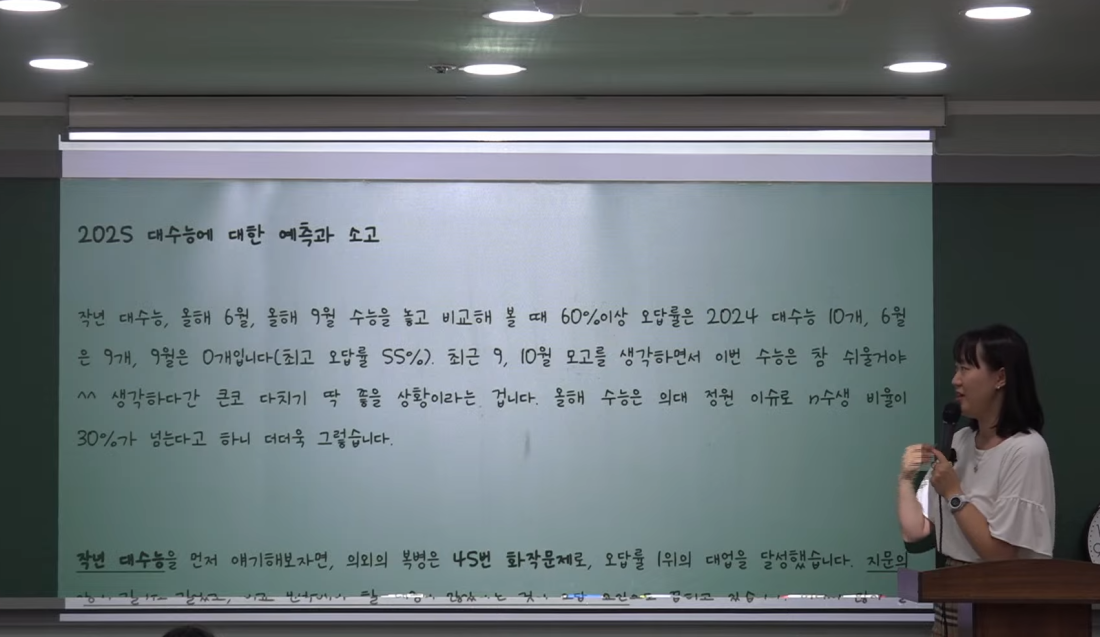 2025 대수능에 대한 예측과 소고
작년 대수능, 올해 6월, 올해 9월 수능을 놓고 비교해 볼 때 60%이상 오답률은 2024 대수능 10개, 6월
은 9개, 9월은 0개입니다(최고 오답률 55%). 최근 9, 10월 모고를 생각하면서 이번 수능은 참 쉬울거야
^^ 생각하다간 큰코 다치기 딱 좋을 상황이라는 겁니다. 올해 수능은 의대 정원 이슈로 n수생 비율이
30%가 넘는다고 하니 더더욱 그렇습니다.
작년 대수능을 먼저 얘기해보자면, 의외의 복병은 45번 화작문제로, 오답률 1위의 대업을 달성했습니다. 지문의